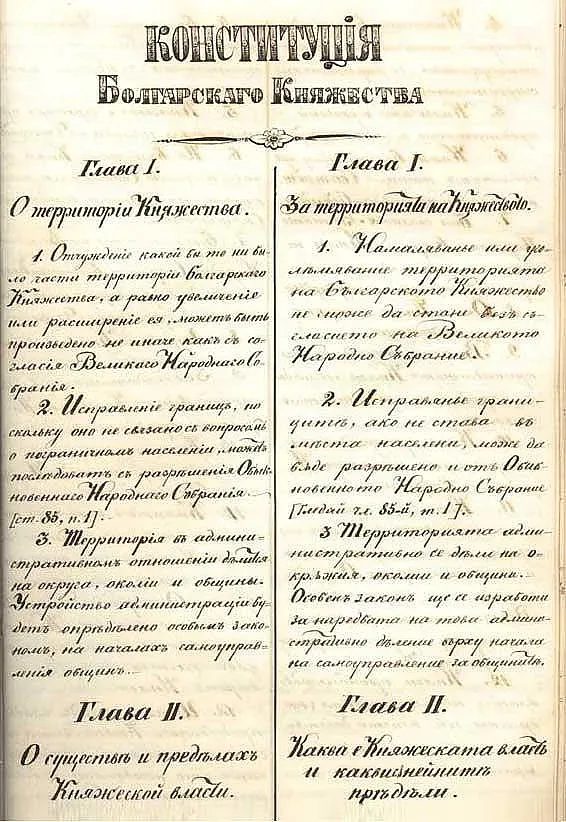 КОНСТИТУЦІЯ
БОЛГАРСКАГО КНЯЖЕСТВА
Глава I.
О территоріи Княжества.
1. Отчужденіе какой бы то ни бы-
ло части территоріи Болгарскаго
Княжества, а равно увеличеніе
или расширеніе ея, можетъ быть
произведено не иначе какъ съ со-
гласія Великаго Народнаго Со-
бранія.
2. Исправленіе границъ, по
скольку оно не связано съ вопросомъ
о пограничномъ населеніи, можетъ
послѣдовать съ разрѣшенія Обык-
новеннаго Народнаго Собранія.
[ст. 85, п. 1].
3. Территорія въ админи-
стративномъ отношеніи дѣлится
на округа, околіи и общины.
Устройство администраціи бу-
детъ опрѣдѣлено особымъ зако-
номъ, на началахъ самоуправ-
ленія общинъ.
Глава II.
О существѣ и предѣлахъ
Княжеской власти.
Глава I.
За территорията на Княжеството.
1. Намаляванье или уго-
лѣмявание территорията
на Българското Княжество
не може да стане безъ съ-
гласието на Великото
Народно Събрание.
2. Исправянье грани-
цитѣ, ако не става въ
мѣста населени, може да
бѫде разрѣшено и отъ Обик-
новенното Народно Събрание
[Гледай чл. 85-й, т. 1].
3 Территорията адми-
нистративно се дѣли на о-
крѫжия, околии и общини.
Особенъ законъ ще се изработи
за наредвата на това админи-
стративно дѣление върху начала
на самоуправление за общинитѣ.
Глава II.
Каква е Княжеската власть
и какви са нейнитѣ
прѣдѣли.